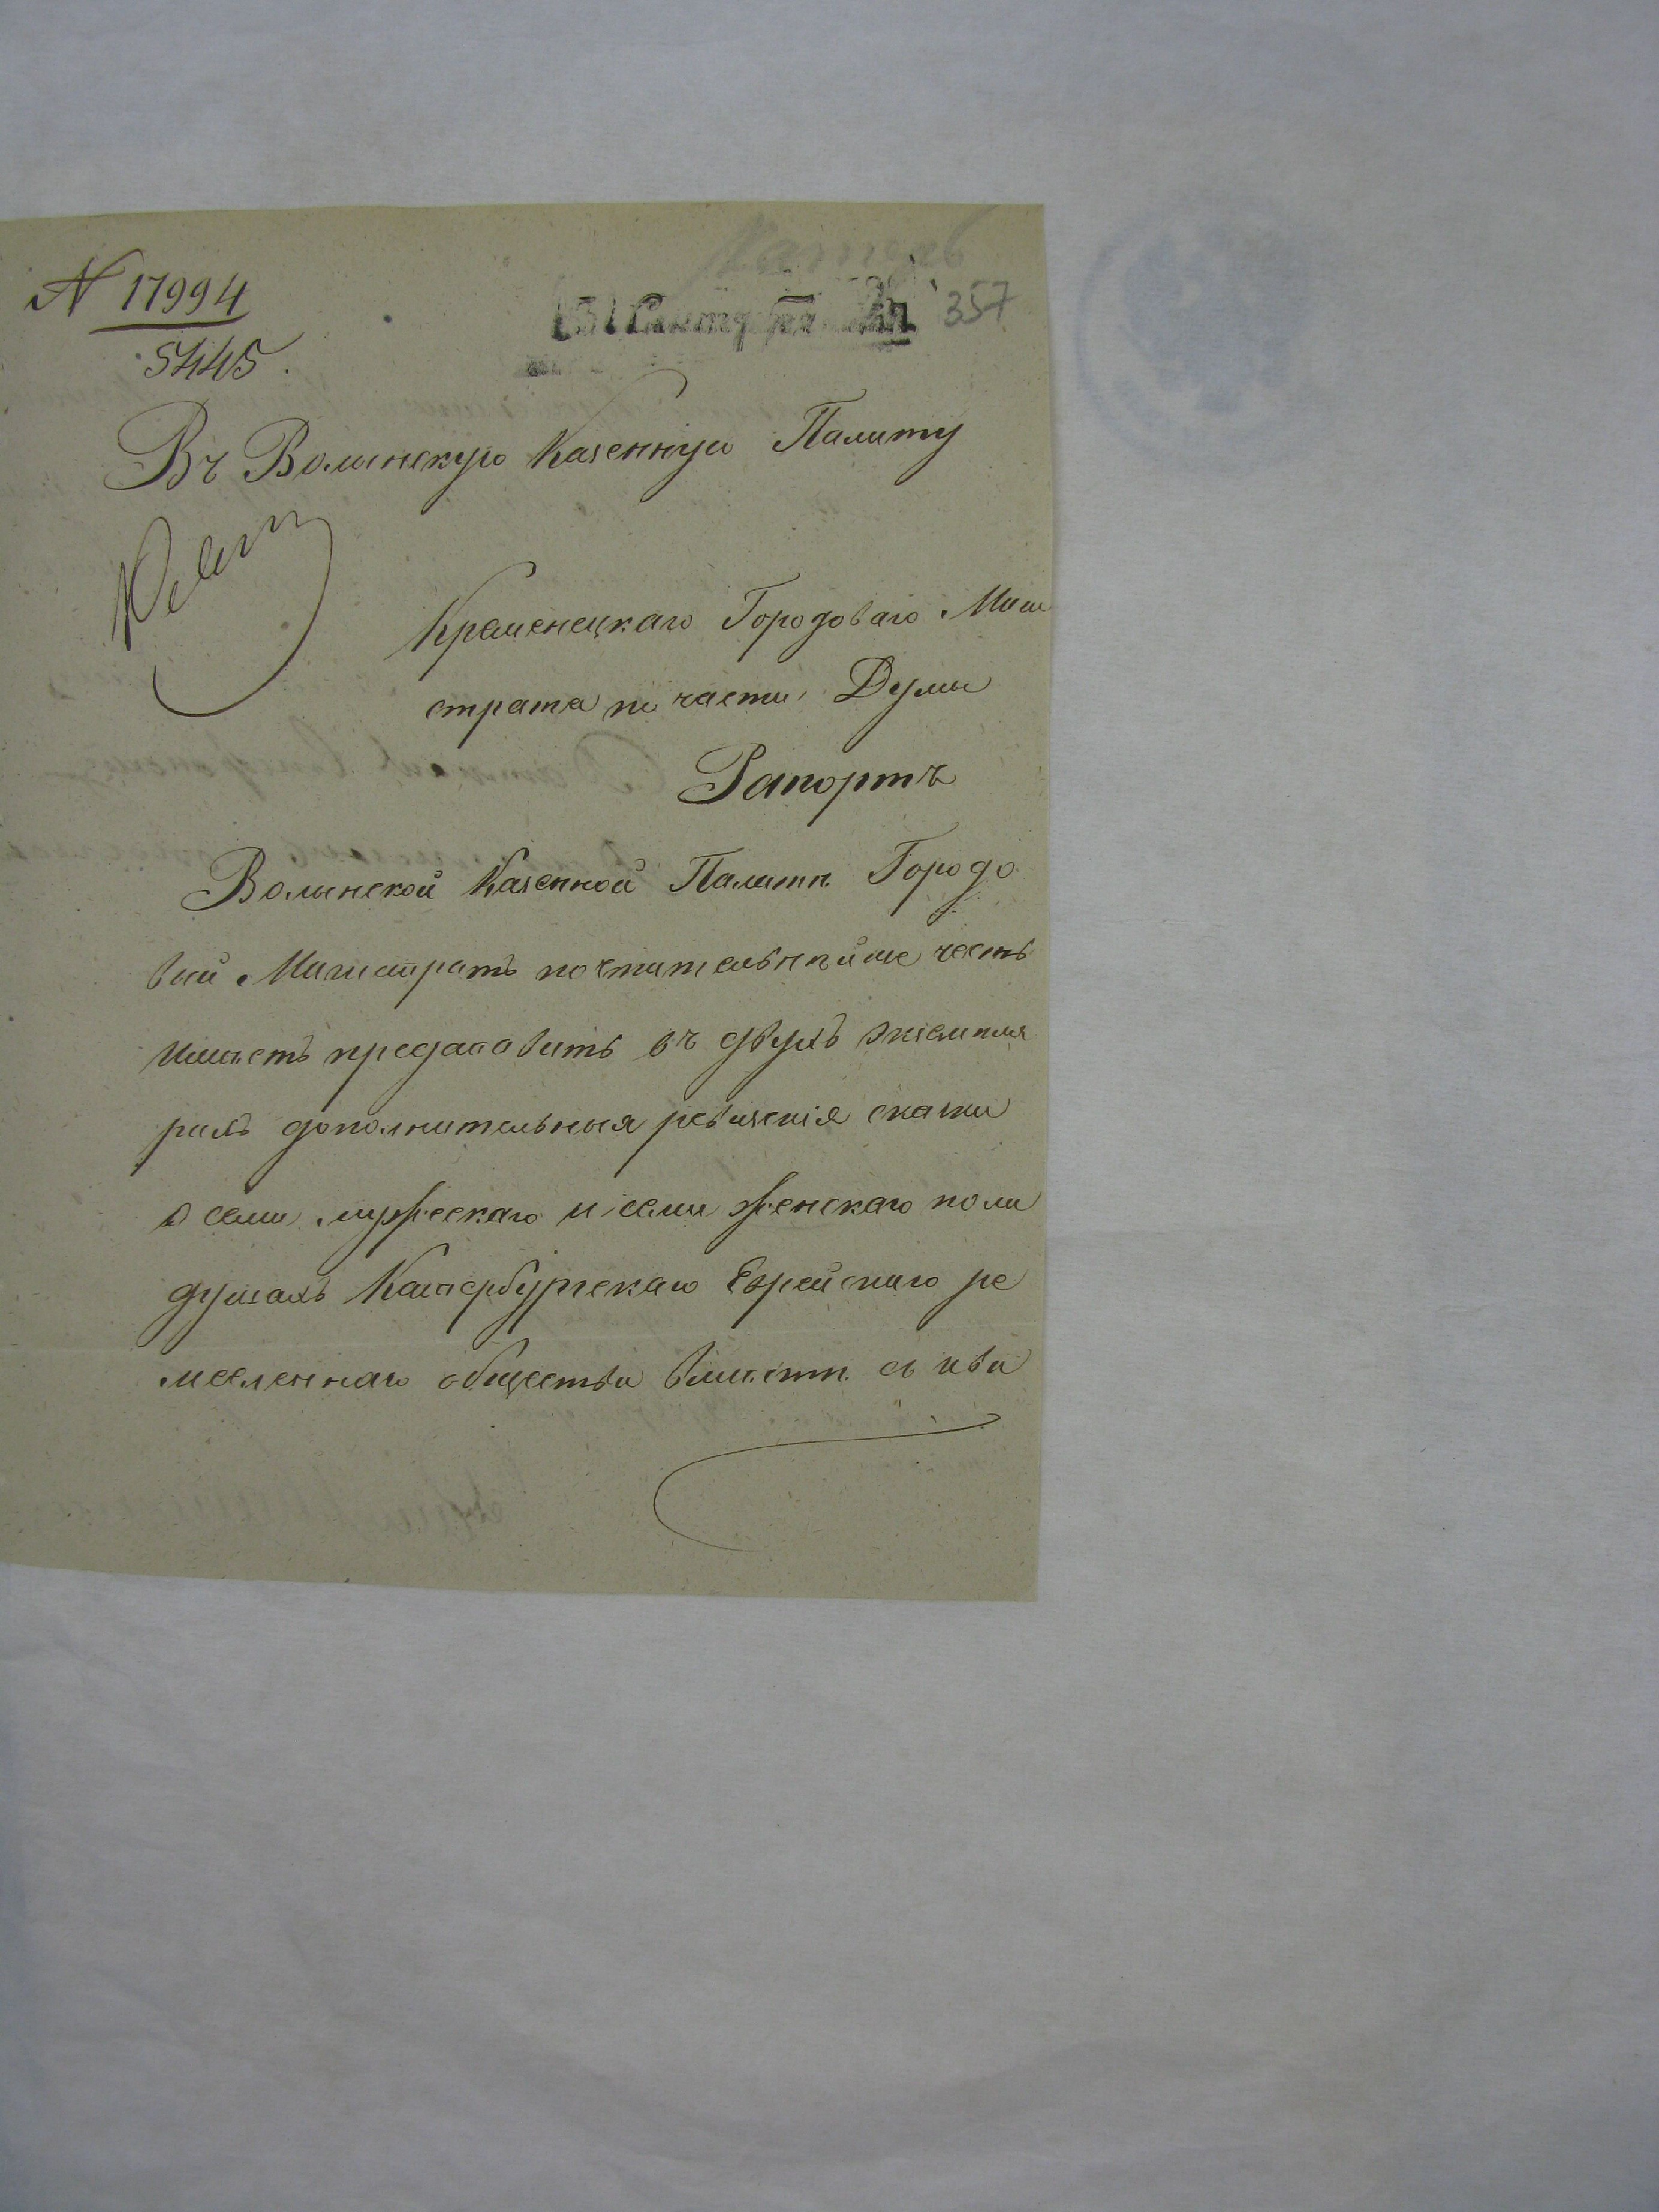 N 17994
5445.
357
Въ Волынскую Казенную Палату
Кременецкаго Городоваго Маги
страта по части Думы
Рапортъ
Волынской Казенной Палатѣ Городо
вый Магистратъ почтительнѣйше честь
имѣетъ представить въ двухъ экземпля
рахъ дополнительныя ревизскія сказки
о семи мужескаго и семи женскаго пола
душахъ Катербургскаго Еврейскаго ре
месленнаго общества вмѣстѣ съ ихъ